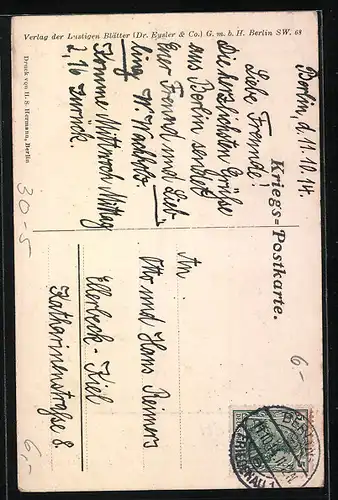 Verlag der Lustigen Blätter (Dr. Eysler & Co.) G. m. b. H. Berlin SW. 68
Druck von H. S. Hermann, Berlin
Kriegs=Postkarte.
Berlin, d. 11.10.14.
Liebe Freunde!
Die herzlichsten Grüße
aus Berlin sendet
Euer Freund und Lieb-
ling W.
Komme Mittwoch Mittag
2,16 zurück.
An
Otto und Hans Reimers
Ellerbeck-Kiel
Katharinenstraße 8.
30-5
6.-
6,-
BERLIN